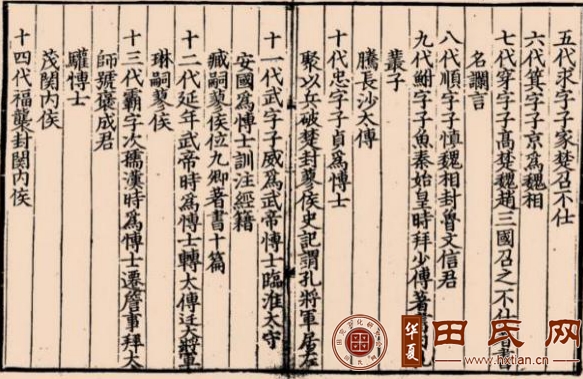 五代求字子家楚召不仕
六代箕字子京爲魏相
七代穿字子高楚魏趙三國召之不仕著書
名讕言
八代順字子慎魏相封魯文信君
九代鮒字子魚秦始皇時拜少傅著
叢子
騰長沙太傅
十代忠字子貞爲博士
聚以兵破楚封蓼侯史記謂孔將軍居左
十一代武字子威爲武帝博士臨淮太守
安國爲博士訓注經籍
臧嗣蓼侯位九卿著書十篇
十二代延年武帝時爲博士轉太傅迁大將軍
琳嗣蓼侯
十三代霸字次孺漢時爲博士遷詹事拜太
師號褒成君
驩博士
茂関内侯
十四代福襲封関内侯
华夏
田氏网
www.hxtian.cn